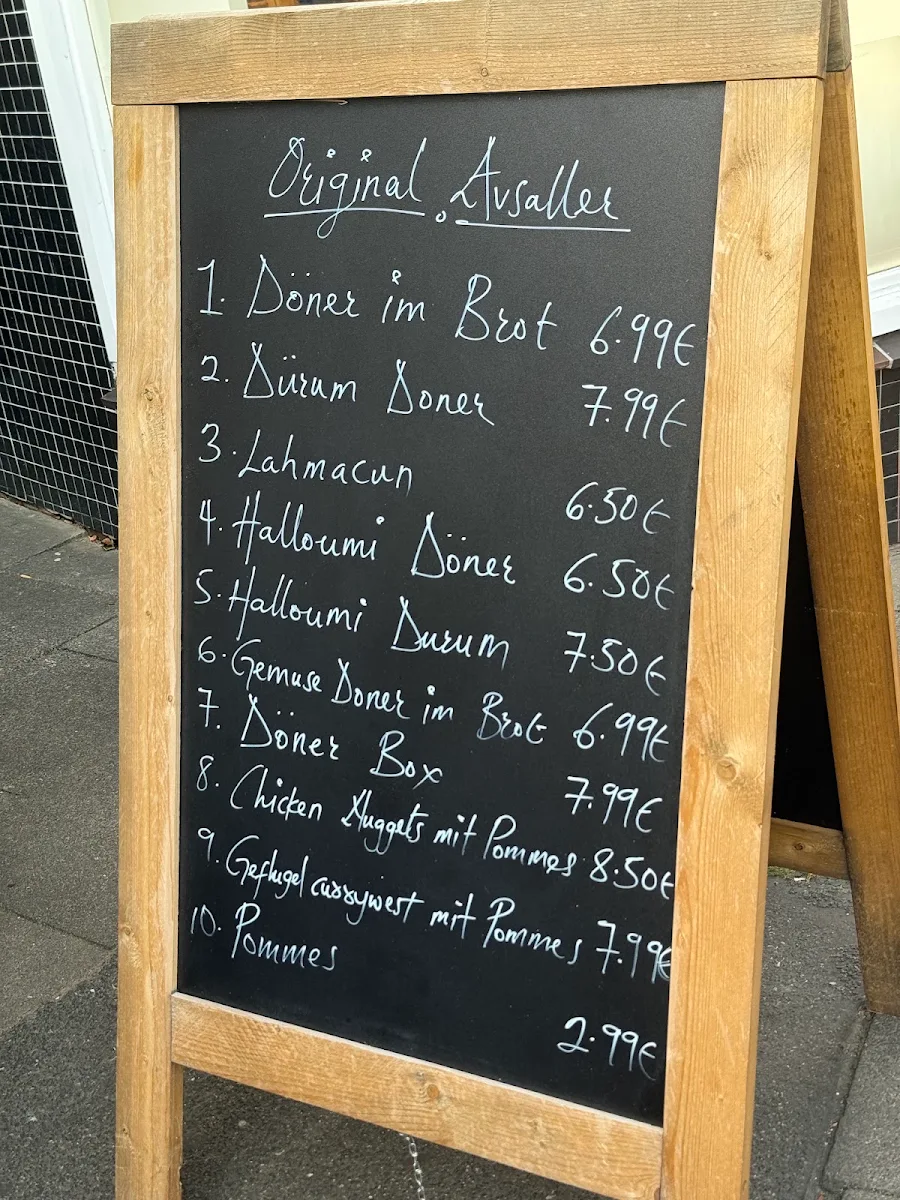 Original Avsaller
1. Döner im Brot 6.99€
2. Dürum Doner 7.99€
3. Lahmacun 6.50€
4. Halloumi Döner 6.50€
5. Halloumi Durum 7.50€
6. Gemuse Doner im Brot 6.99€
7. Döner Box 7.99€
8. Chicken Nuggets mit Pommes 8.50€
9. Geflugel currywest mit Pommes 7.99€
10. Pommes 2.99€